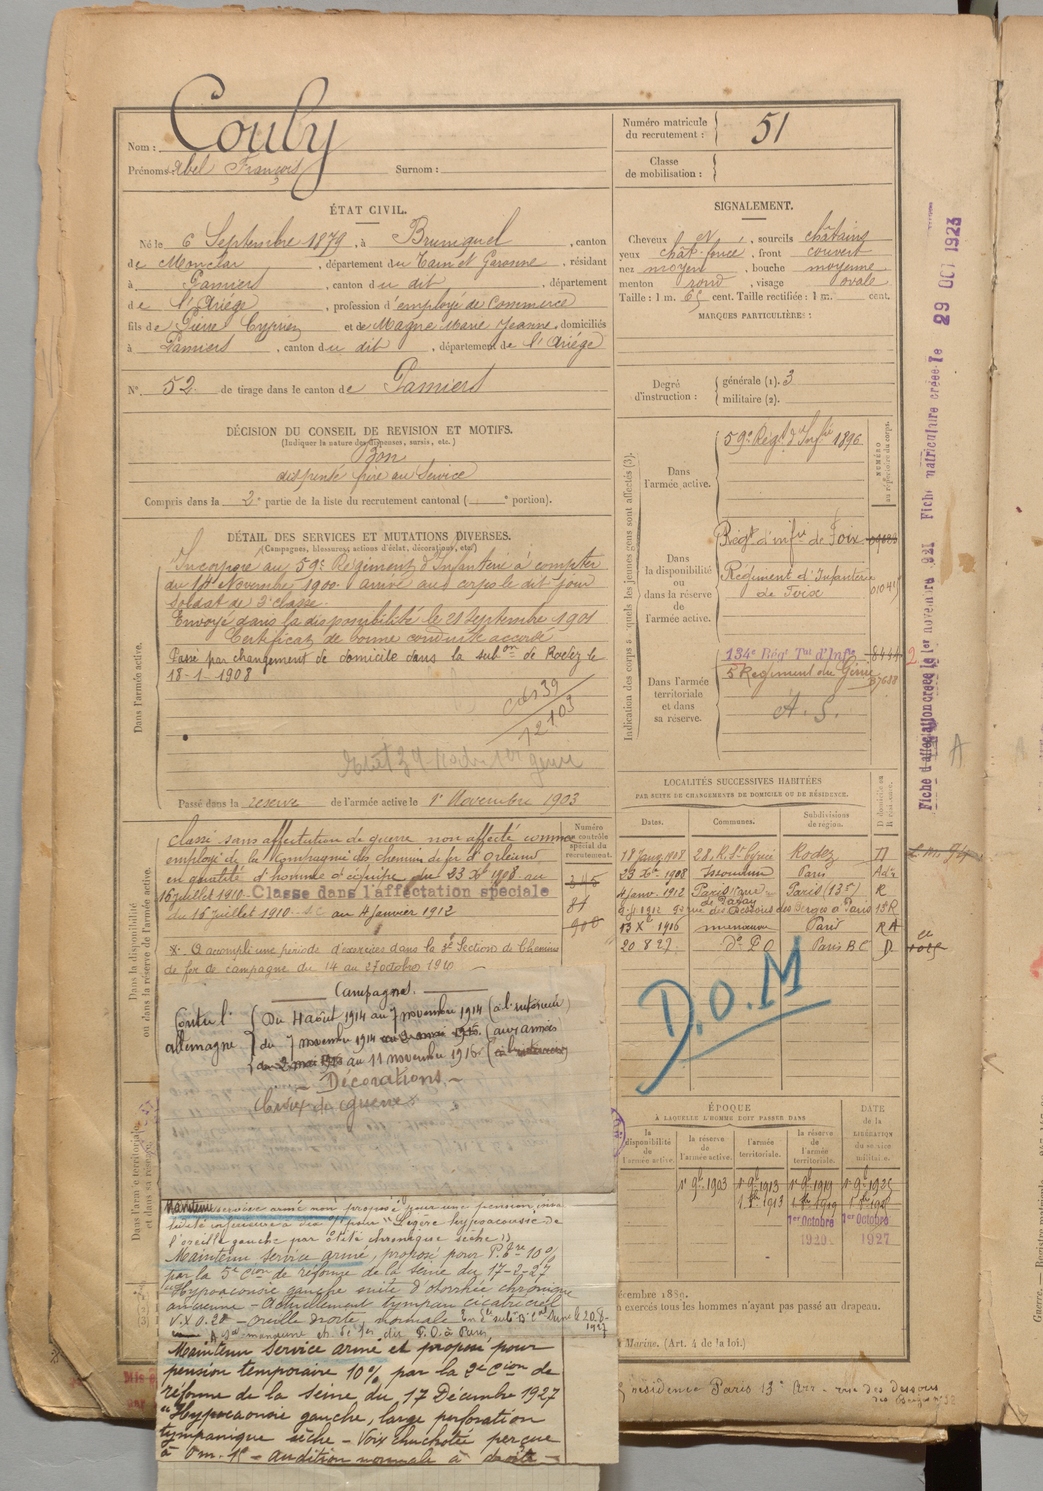 Nom : Couly
Prénoms : Abel François Surnom :
Numéro matricule du recrutement : 51
Classe de mobilisation :
ÉTAT CIVIL.
Né le 6 Septembre 1879, à Bruniquel, canton
de Monclar, département du Tarn et Garonne, résidant
à Pamiers, canton du dit, département
de l'Ariège, profession d'employé de Commerce
fils de Pierre Cyprien et de Magne Marie Jeanne, domiciliés
à Pamiers, canton du dit, département de l'Ariège
N° 52 de tirage dans le canton de Pamiers
SIGNALEMENT.
Cheveux N, sourcils châtains
yeux chât. foncé, front couvert
nez moyen, bouche moyenne
menton rond, visage ovale
Taille : 1 m. 65 cent. Taille rectifiée : 1 m. cent.
MARQUES PARTICULIÈRES :
Degré d'instruction : générale (1). 3
militaire (2).
DÉCISION DU CONSEIL DE REVISION ET MOTIFS.
(Indiquer la nature des dispenses, sursis, etc.)
Bon
dispensé frère au Service
Compris dans la 2e partie de la liste du recrutement cantonal ( e portion).
DÉTAIL DES SERVICES ET MUTATIONS DIVERSES.
(Campagnes, blessures, actions d'éclat, décorations, etc.)
Dans l'armée active.
Incorporé au 59e Régiment d'Infanterie à compter
du 14 Novembre 1900. arrivé au corps le dit jour
Soldat de 2e classe.
Envoyé dans la disponibilité le 21 Septembre 1901
Certificat de bonne conduite accordé
Passé par changement de domicile dans la subon de Rodez le
18-1-1908
Passé dans la reserve de l'armée active le 1er Novembre 1903
Indication des corps auxquels les jeunes gens sont affectés (3).
NUMÉRO au répertoire du corps.
Dans l'armée active.
59e Régt d'Inftie 1896
Dans la disponibilité ou dans la réserve de l'armée active.
Régt d'infie de Foix
Régiment d'Infanterie
de Foix 01041
Dans l'armée territoriale et dans sa réserve.
134e Régt Tal d'Infie
5 Régiment du Génie
A. S.
Fiche d'affectation créée le 1er novembre 921 Fiche matriculaire créée le 29 OCT 1923
Dans la disponibilité ou dans la réserve de l'armée active.
Numéro au contrôle spécial du recrutement.
Classé sans affectation de guerre non affecté comme
employé de la Compagnie des chemins de fer d'Orléans
en qualité d'homme d'équipe du 23 Xbre 1908 au
16 juillet 1910. Classé dans l'affectation spéciale
du 16 juillet 1910 au 4 Janvier 1912
X. A accompli une période d'exercices dans la 3e Section de Chemins
de fer de campagne du 14 au 27 octobre 1910
Campagnes.
Contre l' Du 4 août 1914 au 7 novembre 1914 (à l'intérieur)
allemagne du 7 novembre 1914 au 2 mai 1916 (aux armées)
du 2 mai 1916 au 11 novembre 1916 (à l'intérieur)
Décorations
Croix de guerre
LOCALITÉS SUCCESSIVES HABITÉES
PAR SUITE DE CHANGEMENTS DE DOMICILE OU DE RÉSIDENCE.
Dates. Communes. Subdivisions de région. D domicile ou R résidence.
18 Janv 1908 Rodez D
23 Xbre 1908 Paris
4 Janv. 1912 Paris (13e) R
9-7-1912 92 rue des Dessous des Berges à Paris 13e R
13 Xbre 1916 Paris RA
20.8.27 do P O Paris BC D
D.O.M
ÉPOQUE
À LAQUELLE L'HOMME DOIT PASSER DANS
DATE de la LIBÉRATION du service militaire.
la disponibilité de l'armée active. la réserve de l'armée active. l'armée territoriale. la réserve de l'armée territoriale.
1er 9bre 1903 1er 9bre 1913 1er 9bre 1919 1er 9bre 1925
1er Octobre 1920 1er Octobre 1927
Dans l'armée territoriale et dans sa réserve.
Maintenu service armé non proposé pour une pension, inva
lidité inférieure à dix % pour "Légère hypoacousie de
l'oreille gauche par otite chronique sèche"
Maintenu service armé, proposé pour P. tre 10%
par la 5e Cion de réforme de la Seine du 17-2-27
"Hypoacousie gauche suite d'otorrhée chronique
ancienne - Actuellement tympan cicatriciel
V.X 0.20 - oreille droite, normale
Maintenu service armé et proposé pour
pension temporaire 10%, par la 2e Cion de
réforme de la Seine du, 17 Décembre 1927
"Hypoacousie gauche, large perforation
tympanique sèche - Voix chuchotée perçue
à 0m.15 - audition normale à droite
décembre 1889.
exercés tous les hommes n'ayant pas passé au drapeau.
Marine. (Art. 4 de la loi.)
résidence Paris 13e Arr - rue des dessous
des Berges